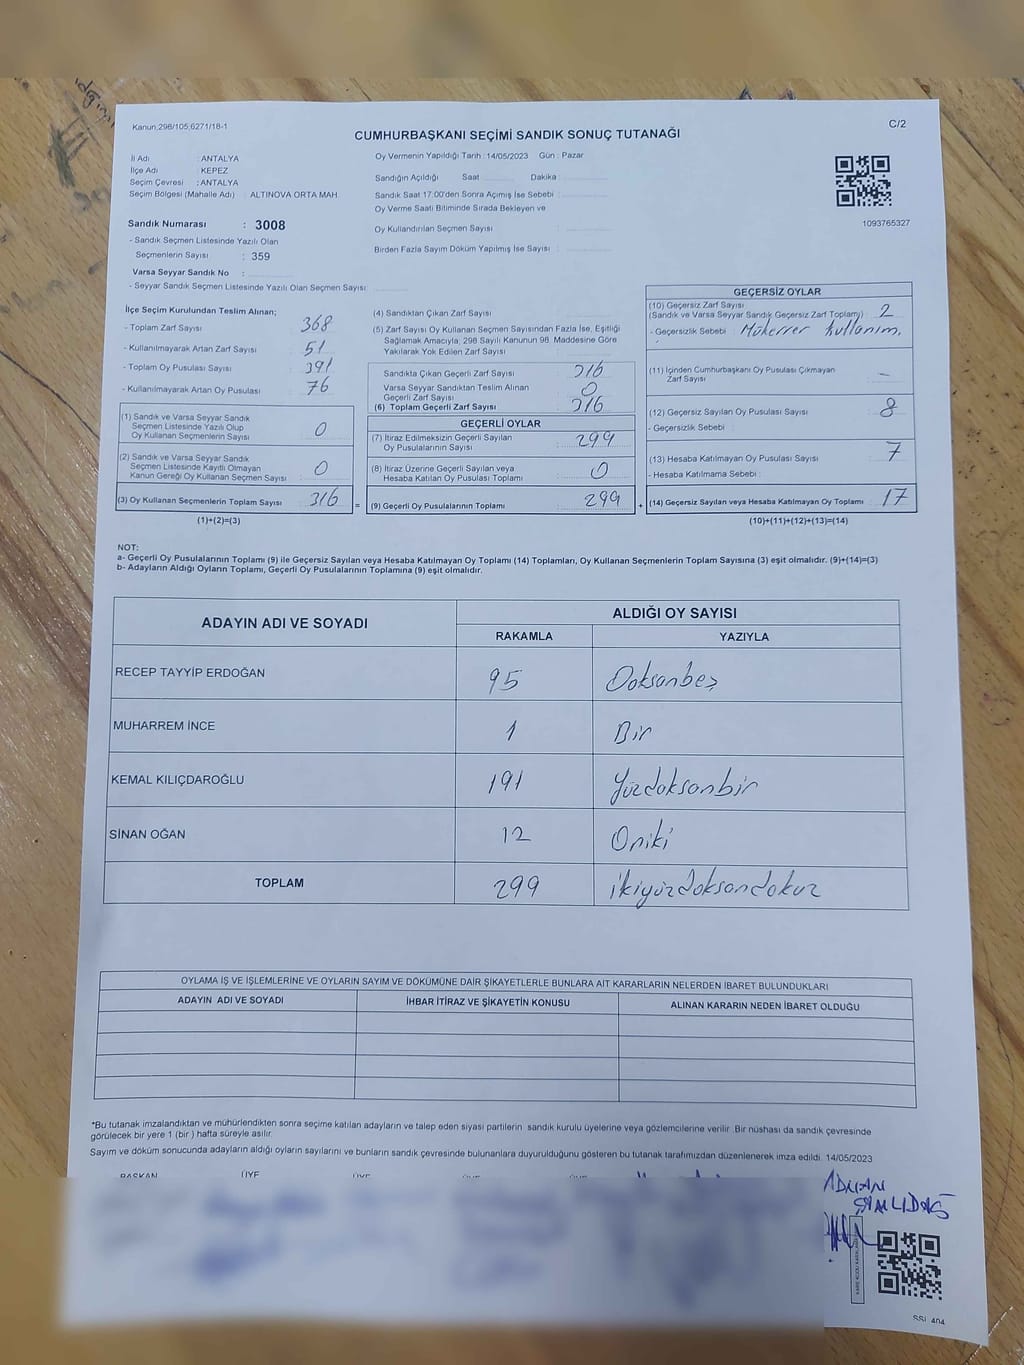 Kanun,298/105,6271/18-1
C/2
CUMHURBAŞKANI SEÇİMİ SANDIK SONUÇ TUTANAĞI
İl Adı : ANTALYA
İlçe Adı : KEPEZ
Seçim Çevresi : ANTALYA
Seçim Bölgesi (Mahalle Adı) : ALTINOVA ORTA MAH.
Sandık Numarası : 3008
- Sandık Seçmen Listesinde Yazılı Olan
Seçmenlerin Sayısı : 359
Varsa Seyyar Sandık No :
- Seyyar Sandık Seçmen Listesinde Yazılı Olan Seçmen Sayısı:
Oy Vermenin Yapıldığı Tarih : 14/05/2023 Gün : Pazar
Sandığın Açıldığı Saat Dakika :
Sandık Saat 17:00'den Sonra Açımış İse Sebebi :
Oy Verme Saati Bitiminde Sırada Bekleyen ve
Oy Kullandırılan Seçmen Sayısı :
Birden Fazla Sayım Döküm Yapılmış İse Sayısı :
1093765327
İlçe Seçim Kurulundan Teslim Alınan;
- Toplam Zarf Sayısı : 368
- Kullanılmayarak Artan Zarf Sayısı : 51
- Toplam Oy Pusulası Sayısı : 391
- Kullanılmayarak Artan Oy Pusulası : 76
(1) Sandık ve Varsa Seyyar Sandık
Seçmen Listesinde Yazılı Olup
Oy Kullanan Seçmenlerin Sayısı : 0
(2) Sandık ve Varsa Seyyar Sandık
Seçmen Listesinde Kayıtlı Olmayan
Kanun Gereği Oy Kullanan Seçmen Sayısı : 0
(3) Oy Kullanan Seçmenlerin Toplam Sayısı : 316
(1)+(2)=(3)
(4) Sandıktan Çıkan Zarf Sayısı :
(5) Zarf Sayısı Oy Kullanan Seçmen Sayısından Fazla İse, Eşitliği
Sağlamak Amacıyla; 298 Sayılı Kanunun 98. Maddesine Göre
Yakılarak Yok Edilen Zarf Sayısı :
Sandıkta Çıkan Geçerli Zarf Sayısı : 316
Varsa Seyyar Sandıktan Teslim Alınan
Geçerli Zarf Sayısı : 0
(6) Toplam Geçerli Zarf Sayısı : 316
GEÇERLİ OYLAR
(7) İtiraz Edilmeksizin Geçerli Sayılan
Oy Pusulalarının Sayısı : 299
(8) İtiraz Üzerine Geçerli Sayılan veya
Hesaba Katılan Oy Pusulası Toplamı : 0
= (9) Geçerli Oy Pusulalarının Toplamı : 299
GEÇERSİZ OYLAR
(10) Geçersiz Zarf Sayısı
(Sandık ve Varsa Seyyar Sandık Geçersiz Zarf Toplamı) : 2
- Geçersizlik Sebebi : Mükerrer kullanım.
(11) İçinden Cumhurbaşkanı Oy Pusulası Çıkmayan
Zarf Sayısı : -
(12) Geçersiz Sayılan Oy Pusulası Sayısı : 8
- Geçersizlik Sebebi :
(13) Hesaba Katılmayan Oy Pusulası Sayısı : 7
- Hesaba Katılmama Sebebi :
+ (14) Geçersiz Sayılan veya Hesaba Katılmayan Oy Toplamı : 17
(10)+(11)+(12)+(13)=(14)
NOT:
a- Geçerli Oy Pusulalarının Toplamı (9) ile Geçersiz Sayılan veya Hesaba Katılmayan Oy Toplamı (14) Toplamları, Oy Kullanan Seçmenlerin Toplam Sayısına (3) eşit olmalıdır. (9)+(14)=(3)
b- Adayların Aldığı Oyların Toplamı, Geçerli Oy Pusulalarının Toplamına (9) eşit olmalıdır.
ADAYIN ADI VE SOYADI
ALDIĞI OY SAYISI
RAKAMLA YAZIYLA
RECEP TAYYİP ERDOĞAN 95 Doksanbeş
MUHARREM İNCE 1 Bir
KEMAL KILIÇDAROĞLU 191 Yüzdoksanbir
SİNAN OĞAN 12 Oniki
TOPLAM 299 ikiyüzdoksandokuz
OYLAMA İŞ VE İŞLEMLERİNE VE OYLARIN SAYIM VE DÖKÜMÜNE DAİR ŞİKAYETLERLE BUNLARA AİT KARARLARIN NELERDEN İBARET BULUNDUKLARI
ADAYIN ADI VE SOYADI İHBAR İTİRAZ VE ŞİKAYETİN KONUSU ALINAN KARARIN NEDEN İBARET OLDUĞU
*Bu tutanak imzalandıktan ve mühürlendikten sonra seçime katılan adayların ve talep eden siyasi partilerin sandık kurulu üyelerine veya gözlemcilerine verilir .Bir nüshası da sandık çevresinde
görülecek bir yere 1 (bir ) hafta süreyle asılır.
Sayım ve döküm sonucunda adayların aldığı oyların sayılarını ve bunların sandık çevresinde bulunanlara duyurulduğunu gösteren bu tutanak tarafımızdan düzenlenerek imza edildi. 14/05/2023
BAŞKAN ÜYE ÜYE
ADNAN